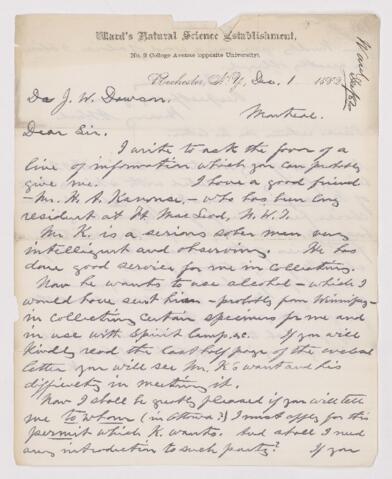 Ward's Natural Science Establishment,
No. 2 College Avenue opposite University,
Rochester, N.Y, Dec. 1 1882
Dr J. W. Dawson.
Montreal.
Dear Sir.
I write to ask the favor of a
line of information which you can probably
give me. I have a good friend
- Mr. H. A. - who has been long
resident at Ft. Mac Leod, N.W.T.
Mr. K. is a serious sober man very
intelligent and observing. He has
done good service for me in collecting.
Now he wants to use alcohol - which I
would have sent him - probably from Winnipeg -
in collecting certain specimens for me and
in use with Spirit Lamp &c. If you will
Kindly read the last half page of the
letter you will see Mr. K's want and his
difficulty in meeting it.
Now I shall be greatly pleased if you will tell
me to whom (in Ottawa?) I must apply for this
permit which K. wants. And shall I need
any introduction to such party? If you